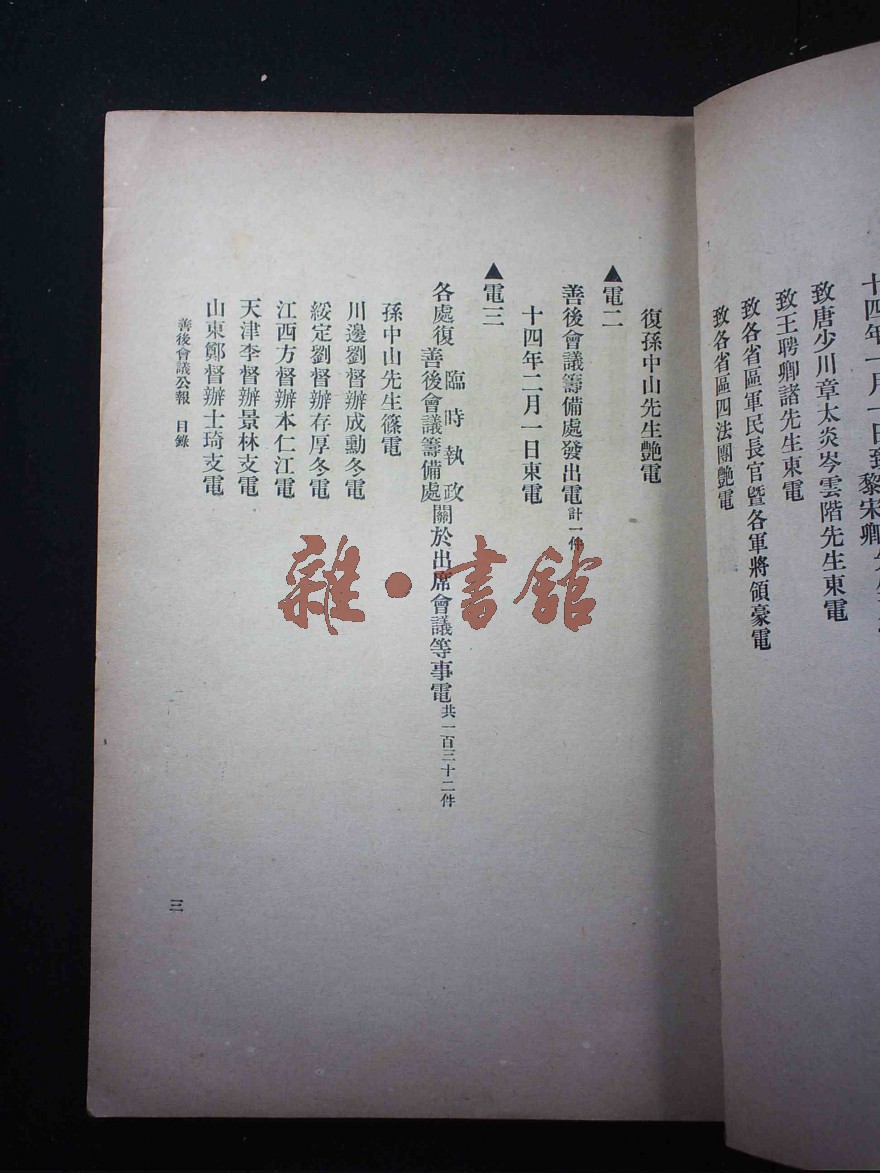 十四年一月一日致黎宋卿先生
致唐少川章太炎岑雲階先生東電
致王聘卿諸先生東電
致各省區軍民長官暨各軍將領豪電
致各省區四法團艷電
復孫中山先生艷電
▲電二
善後會議籌備處發出電計一件
十四年二月一日東電
▲電三
各處復臨時執政善後會議籌備處關於出席會議等事電共一百三十二件
孫中山先生篠電
川邊劉督辦成勳冬電
綏定劉督辦存厚冬電
江西方督辦本仁江電
天津李督辦景林支電
山東鄭督辦士琦支電
善後會議公報 目錄
三
雜·書館